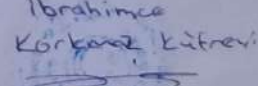 İbrahimce
Korkmaz Küfrevi